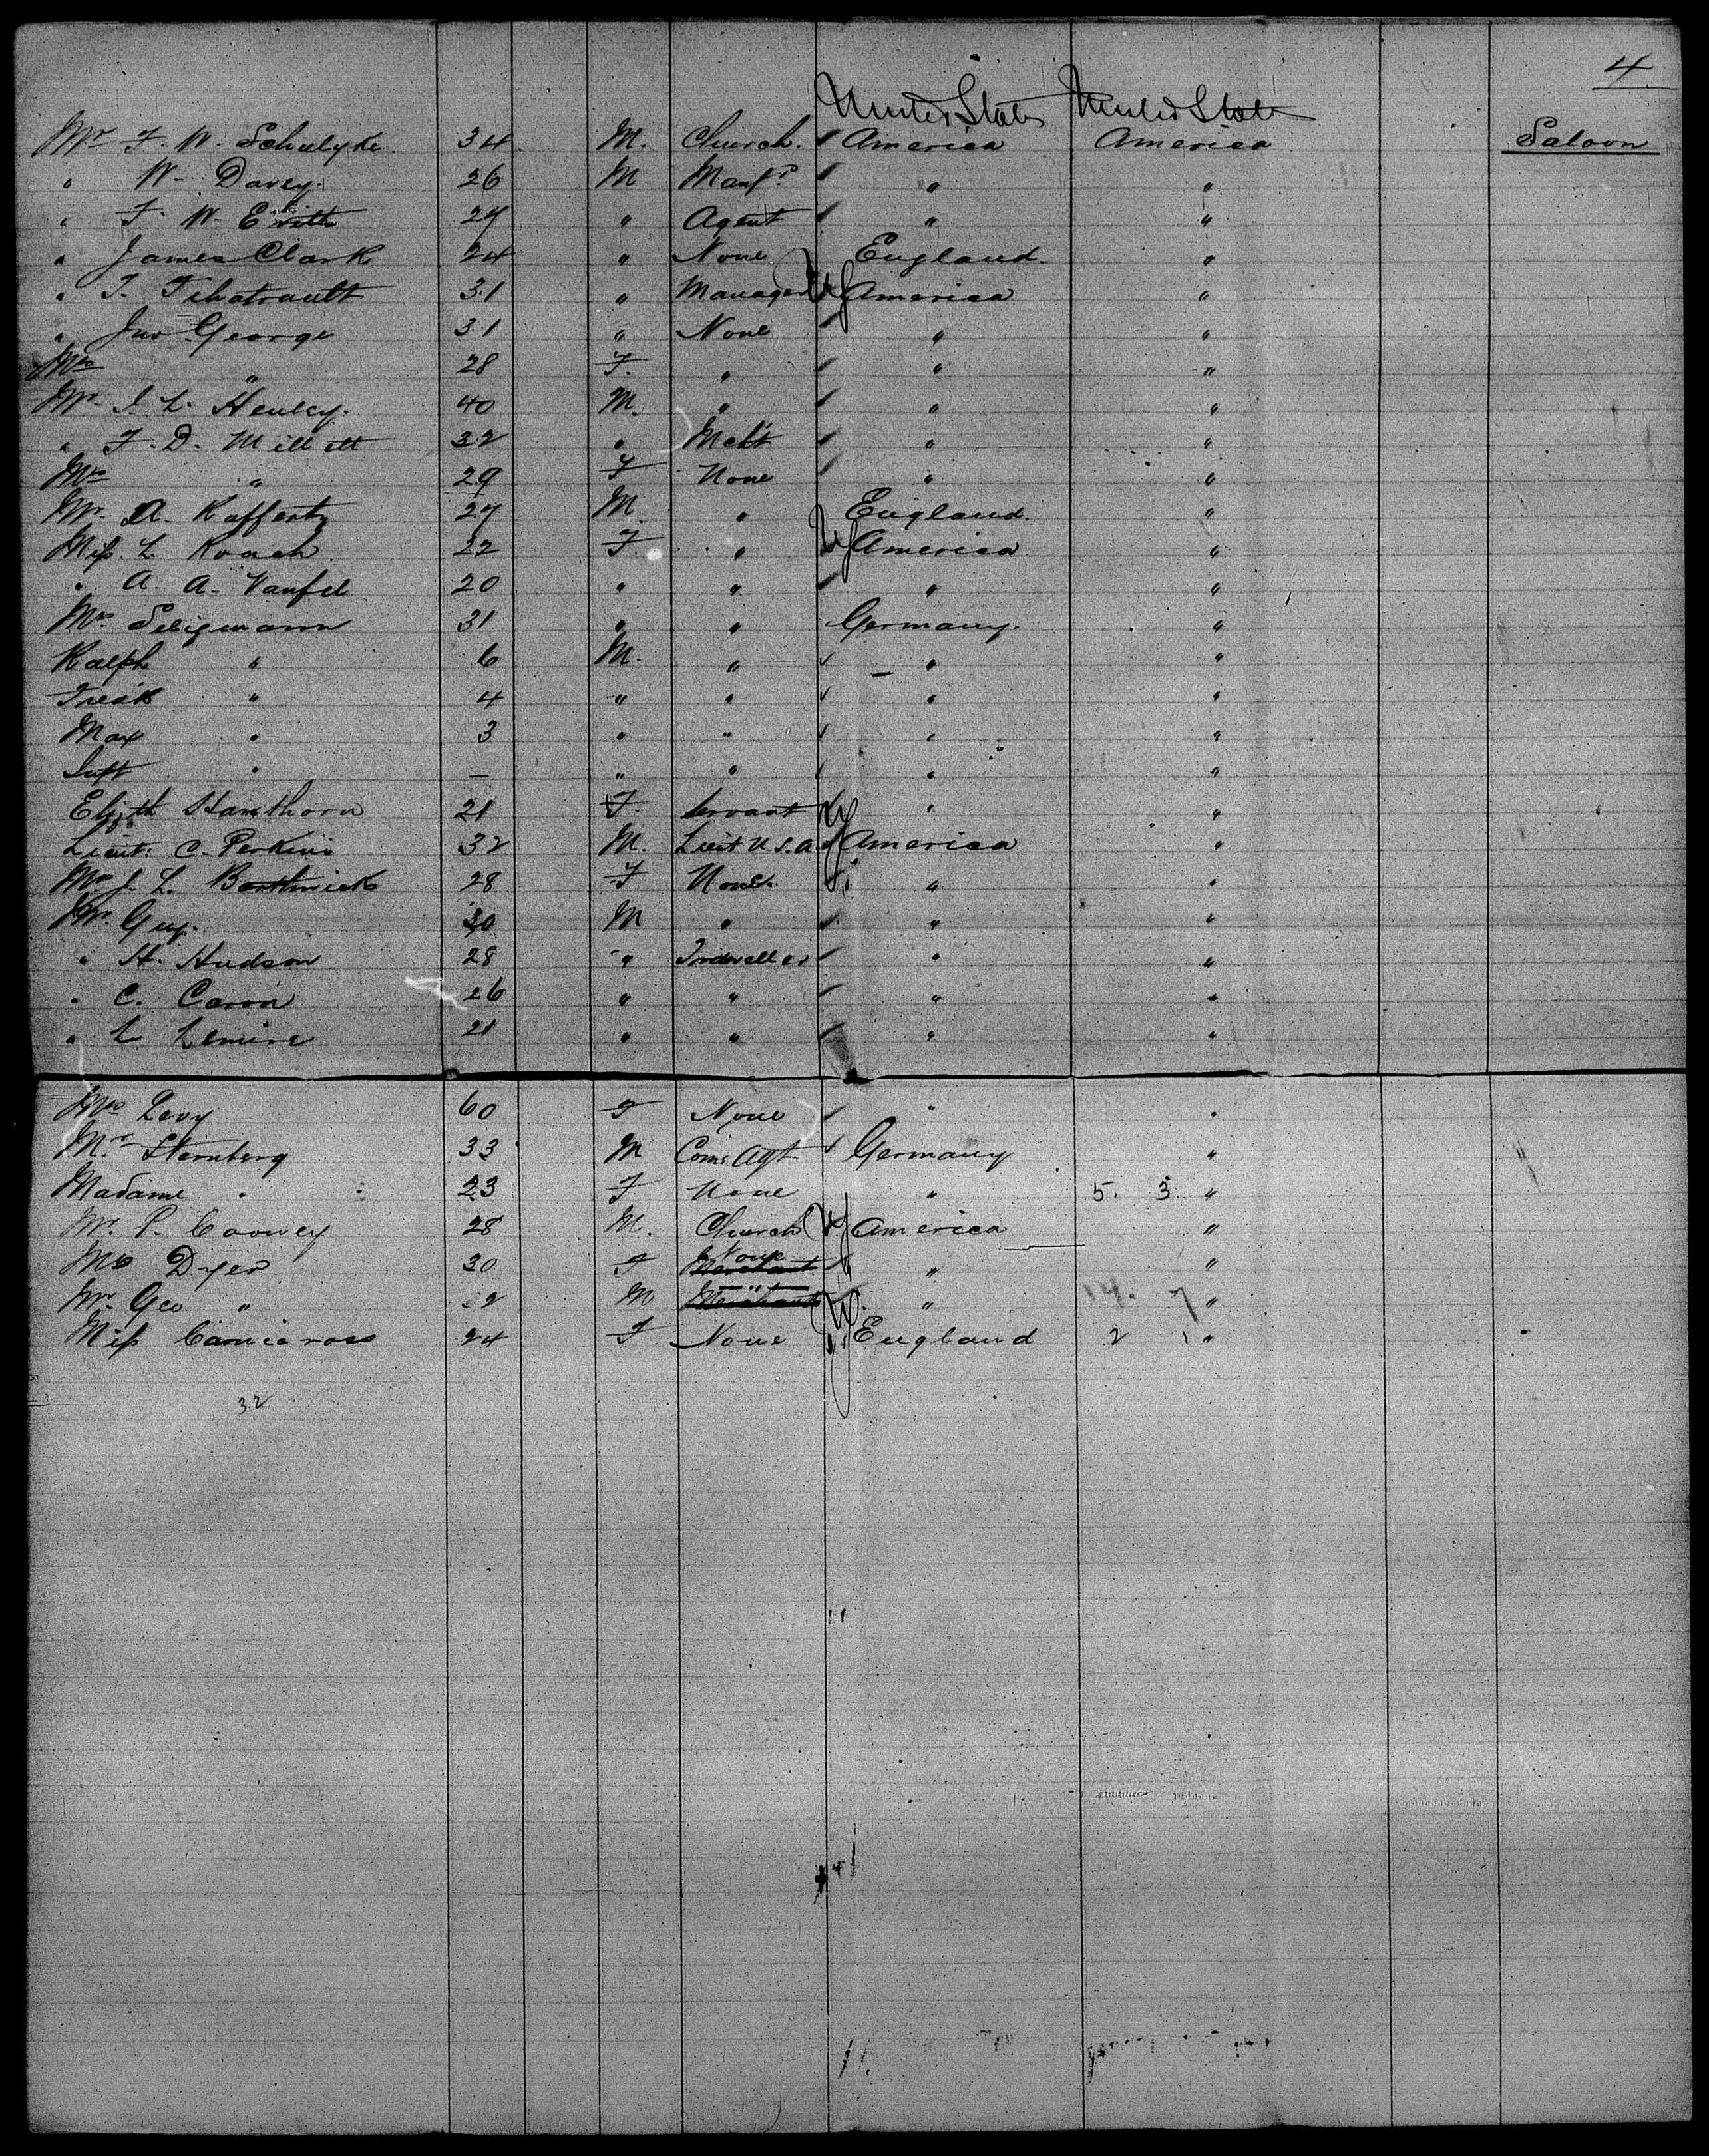 4
United States United States
Mr F. W. Schulyke. 34 M. Church. America America Saloon
" W. Davey. 26 M Manfr " "
" F. W. 27 " Agent " "
" James Clark 24 " None England. "
" T. 31 " Manager America "
" Jno George 31 " None " "
Mrs " 28 F. " " "
Mr J. L. Henley. 40 M. " " "
" F. D. Millett 32 " Mcht " "
Mrs " 29 F None " "
Mr. A. Rafferty 27 M. " England. "
Miss. L Roach 22 F. " America "
" A. A. 20 " " " "
Mrs Seligmann 31 " " Germany. "
Ralph " 6 M. " " "
Fredk " 4 " " " "
Max " 3 " " " "
Inft " — " " " "
Elizth Hawthorn 21 F. Servant " "
Lieut: C. Perkins 32 M. Lieut U.S.A America "
Mrs J. L. Borthwick 28 F None. " "
Mr. Guy. 30 M " " "
" H. Hudson 28 " Traveller " "
" C. Caron 26 " " " "
" L Lemire 21 " " " "
Mrs Levy 60 F None " "
Mr. Sternberg 33 M Coms Agt Germany "
Madame " 23 F None " 5. 3 "
Mr. P. Cooney 28 M. Church America "
Mrs Dyer 30 F None Merchant " "
Mr. Geo " 2 M " Merchant " 14. 7 "
Miss 24 F None England 2 1 "
32